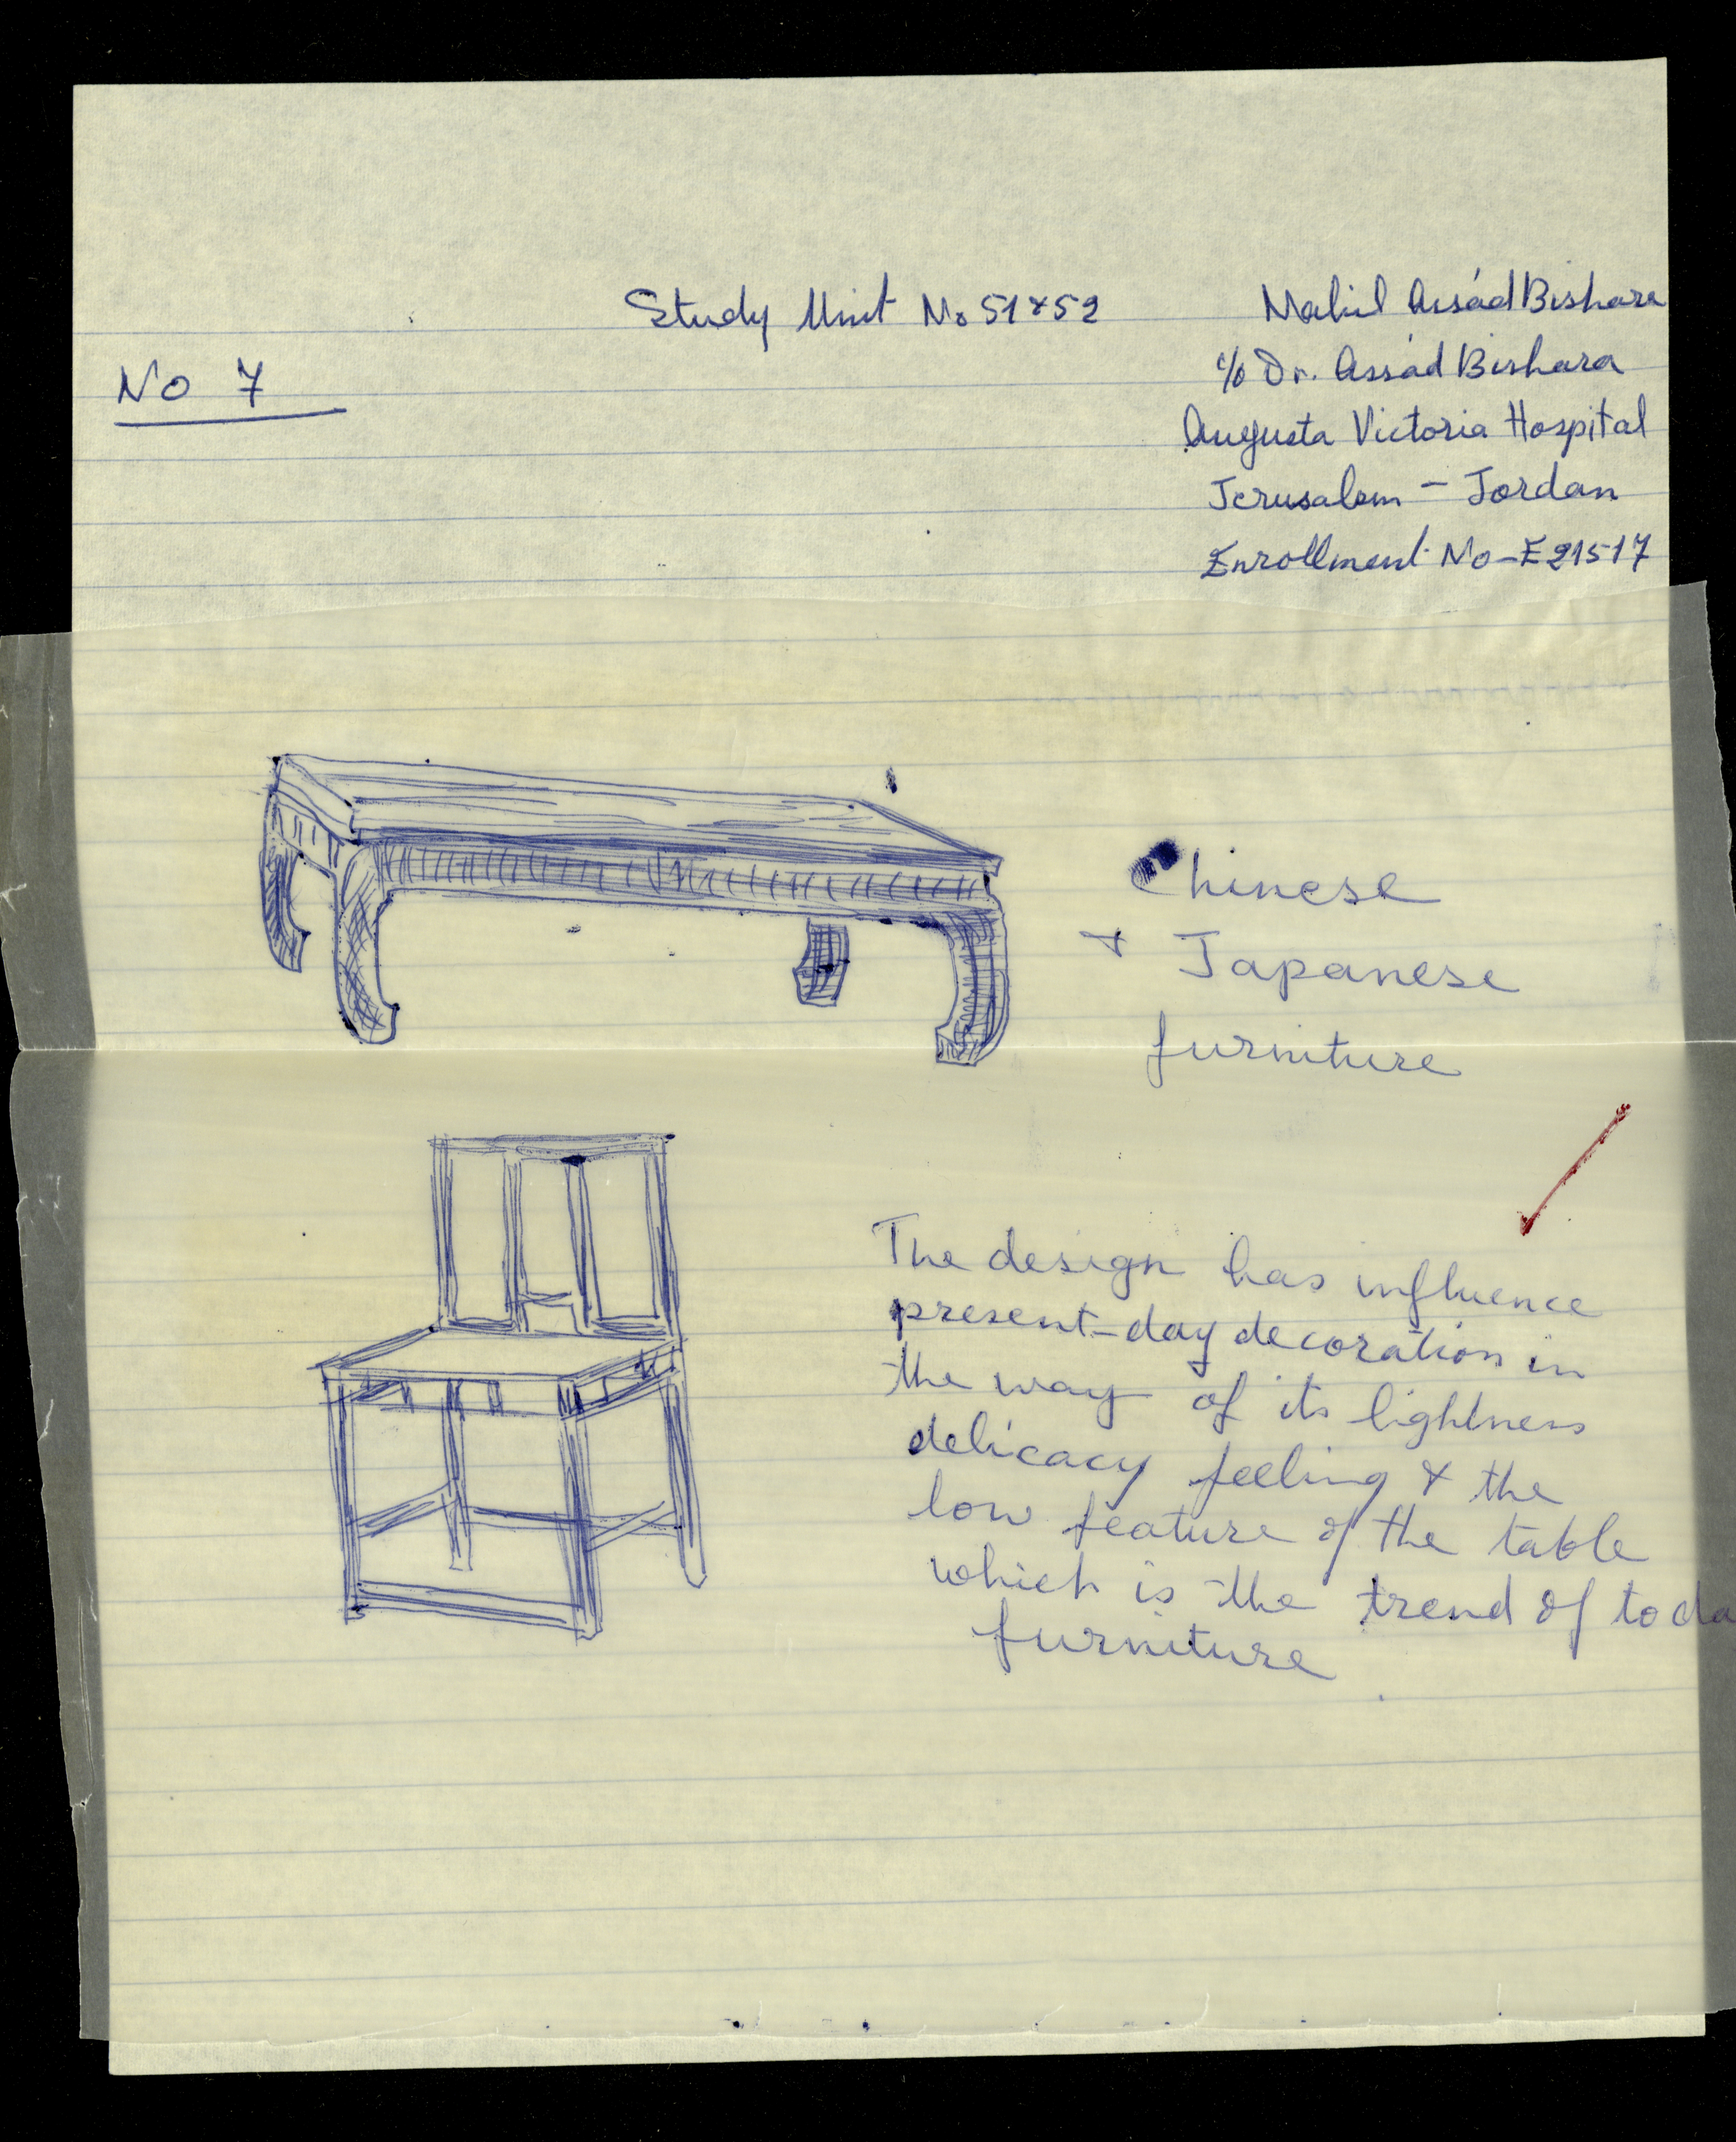 Study Unit No 51 & 52
No 7
Nabil Assád Bishara
c/o Dr. Assád Bishara
Augusta Victoria Hospital
Jerusalem - Jordan
Enrollment No - E21517
Chinese
& Japanese
furniture
The design has influence
present-day decoration in
the way of its lightness
delicacy feeling & the
low feature of the table
which is the trend of toda
furniture